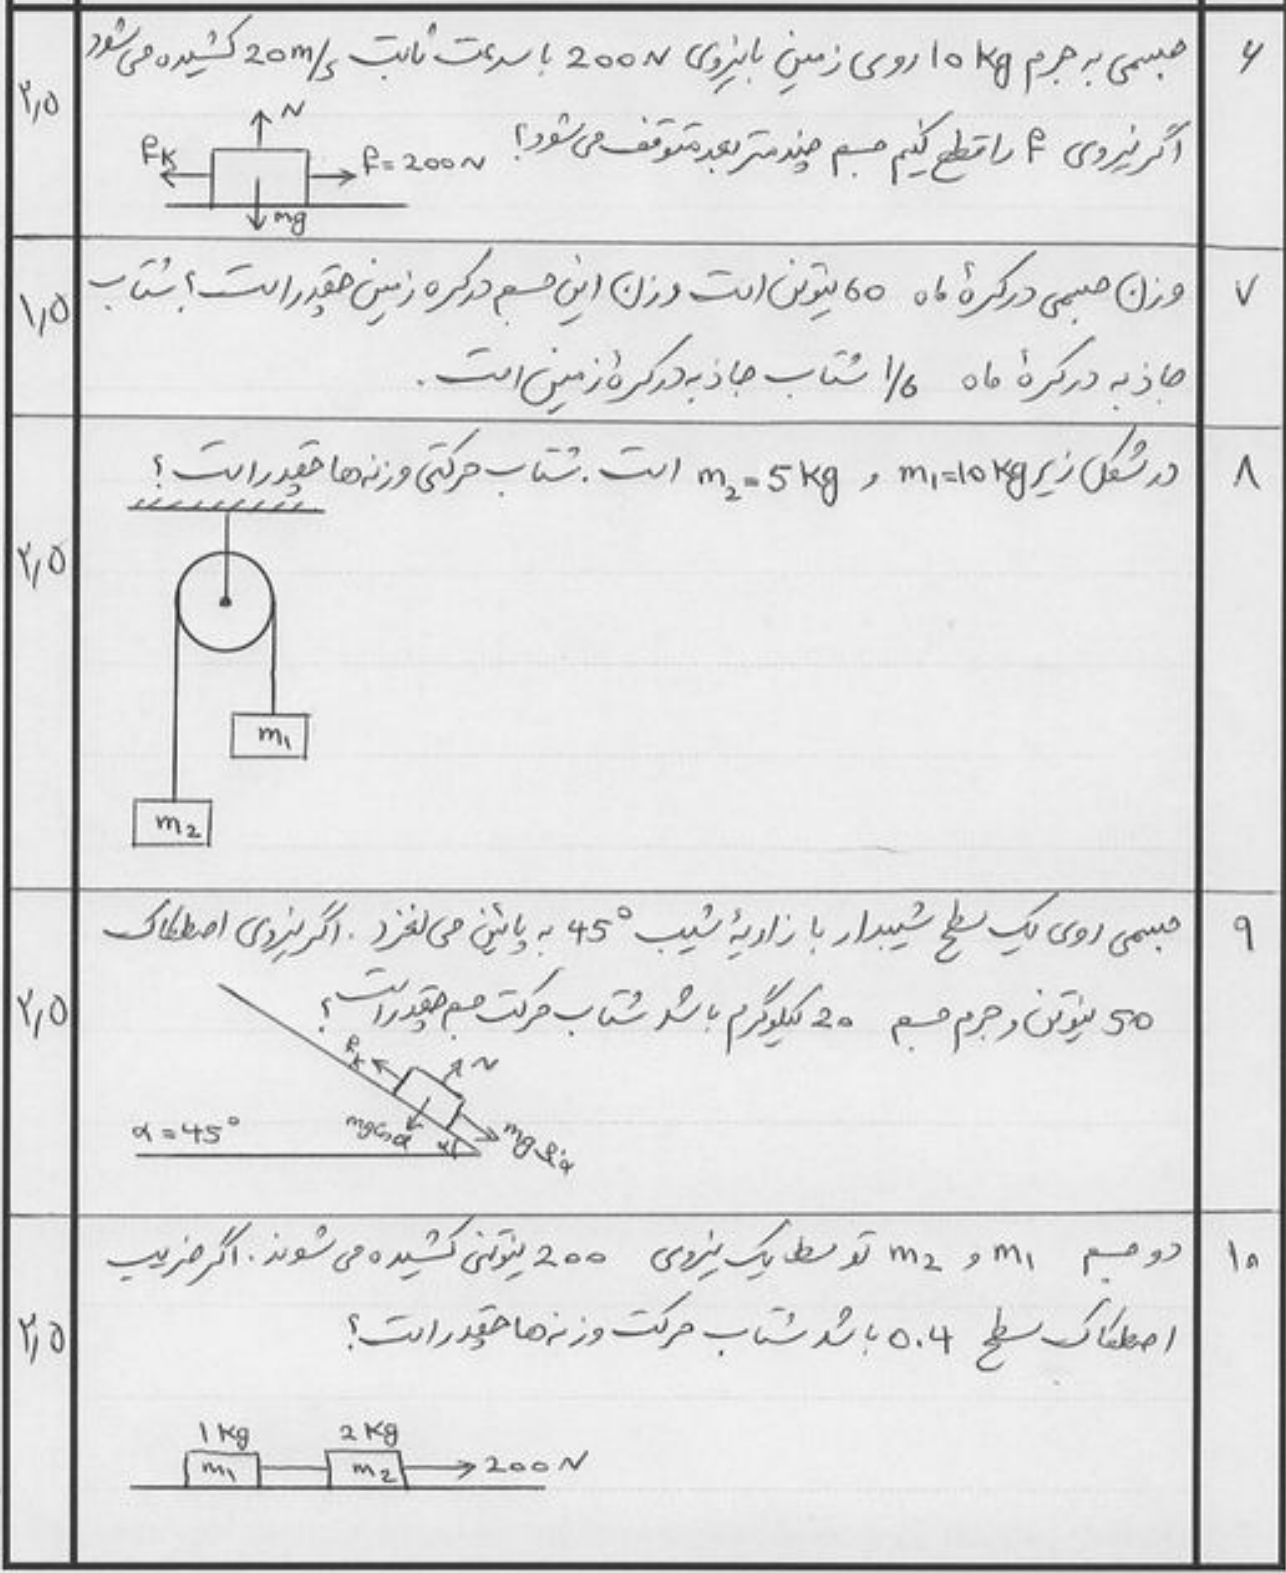 ۶
جسمی به جرم 10 kg روی زمین با نیروی 200 N با سرعت ثابت 20 m/s کشیده می‌شود
اگر نیروی F را قطع کنیم جسم چند متر بعد متوقف می‌شود؟
۲,۵
N
fK
F = 200 N
mg
۷
وزن جسمی در کرهٔ ماه 60 نیوتن است وزن این جسم در کره زمین چقدر است؟ شتاب
جاذبه در کرهٔ ماه 1/6 شتاب جاذبه در کرهٔ زمین است.
۱,۵
۸
در شکل زیر m1=10 kg و m2=5 kg است. شتاب حرکتی وزنه‌ها چقدر است؟
۲,۵
m1
m2
۹
جسمی روی یک سطح شیبدار با زاویهٔ شیب 45° به پائین می‌لغزد. اگر نیروی اصطکاک
50 نیوتن و جرم جسم 20 کیلوگرم باشد شتاب حرکت جسم چقدر است؟
۲,۵
fK
N
α = 45°
mg cos α
α
mg sin α
۱۰
دو جسم m1 و m2 توسط یک نیروی 200 نیوتنی کشیده می‌شوند. اگر ضریب
اصطکاک سطح 0.4 باشد شتاب حرکت وزنه‌ها چقدر است؟
۲,۵
1 Kg
2 Kg
m1
m2
200 N